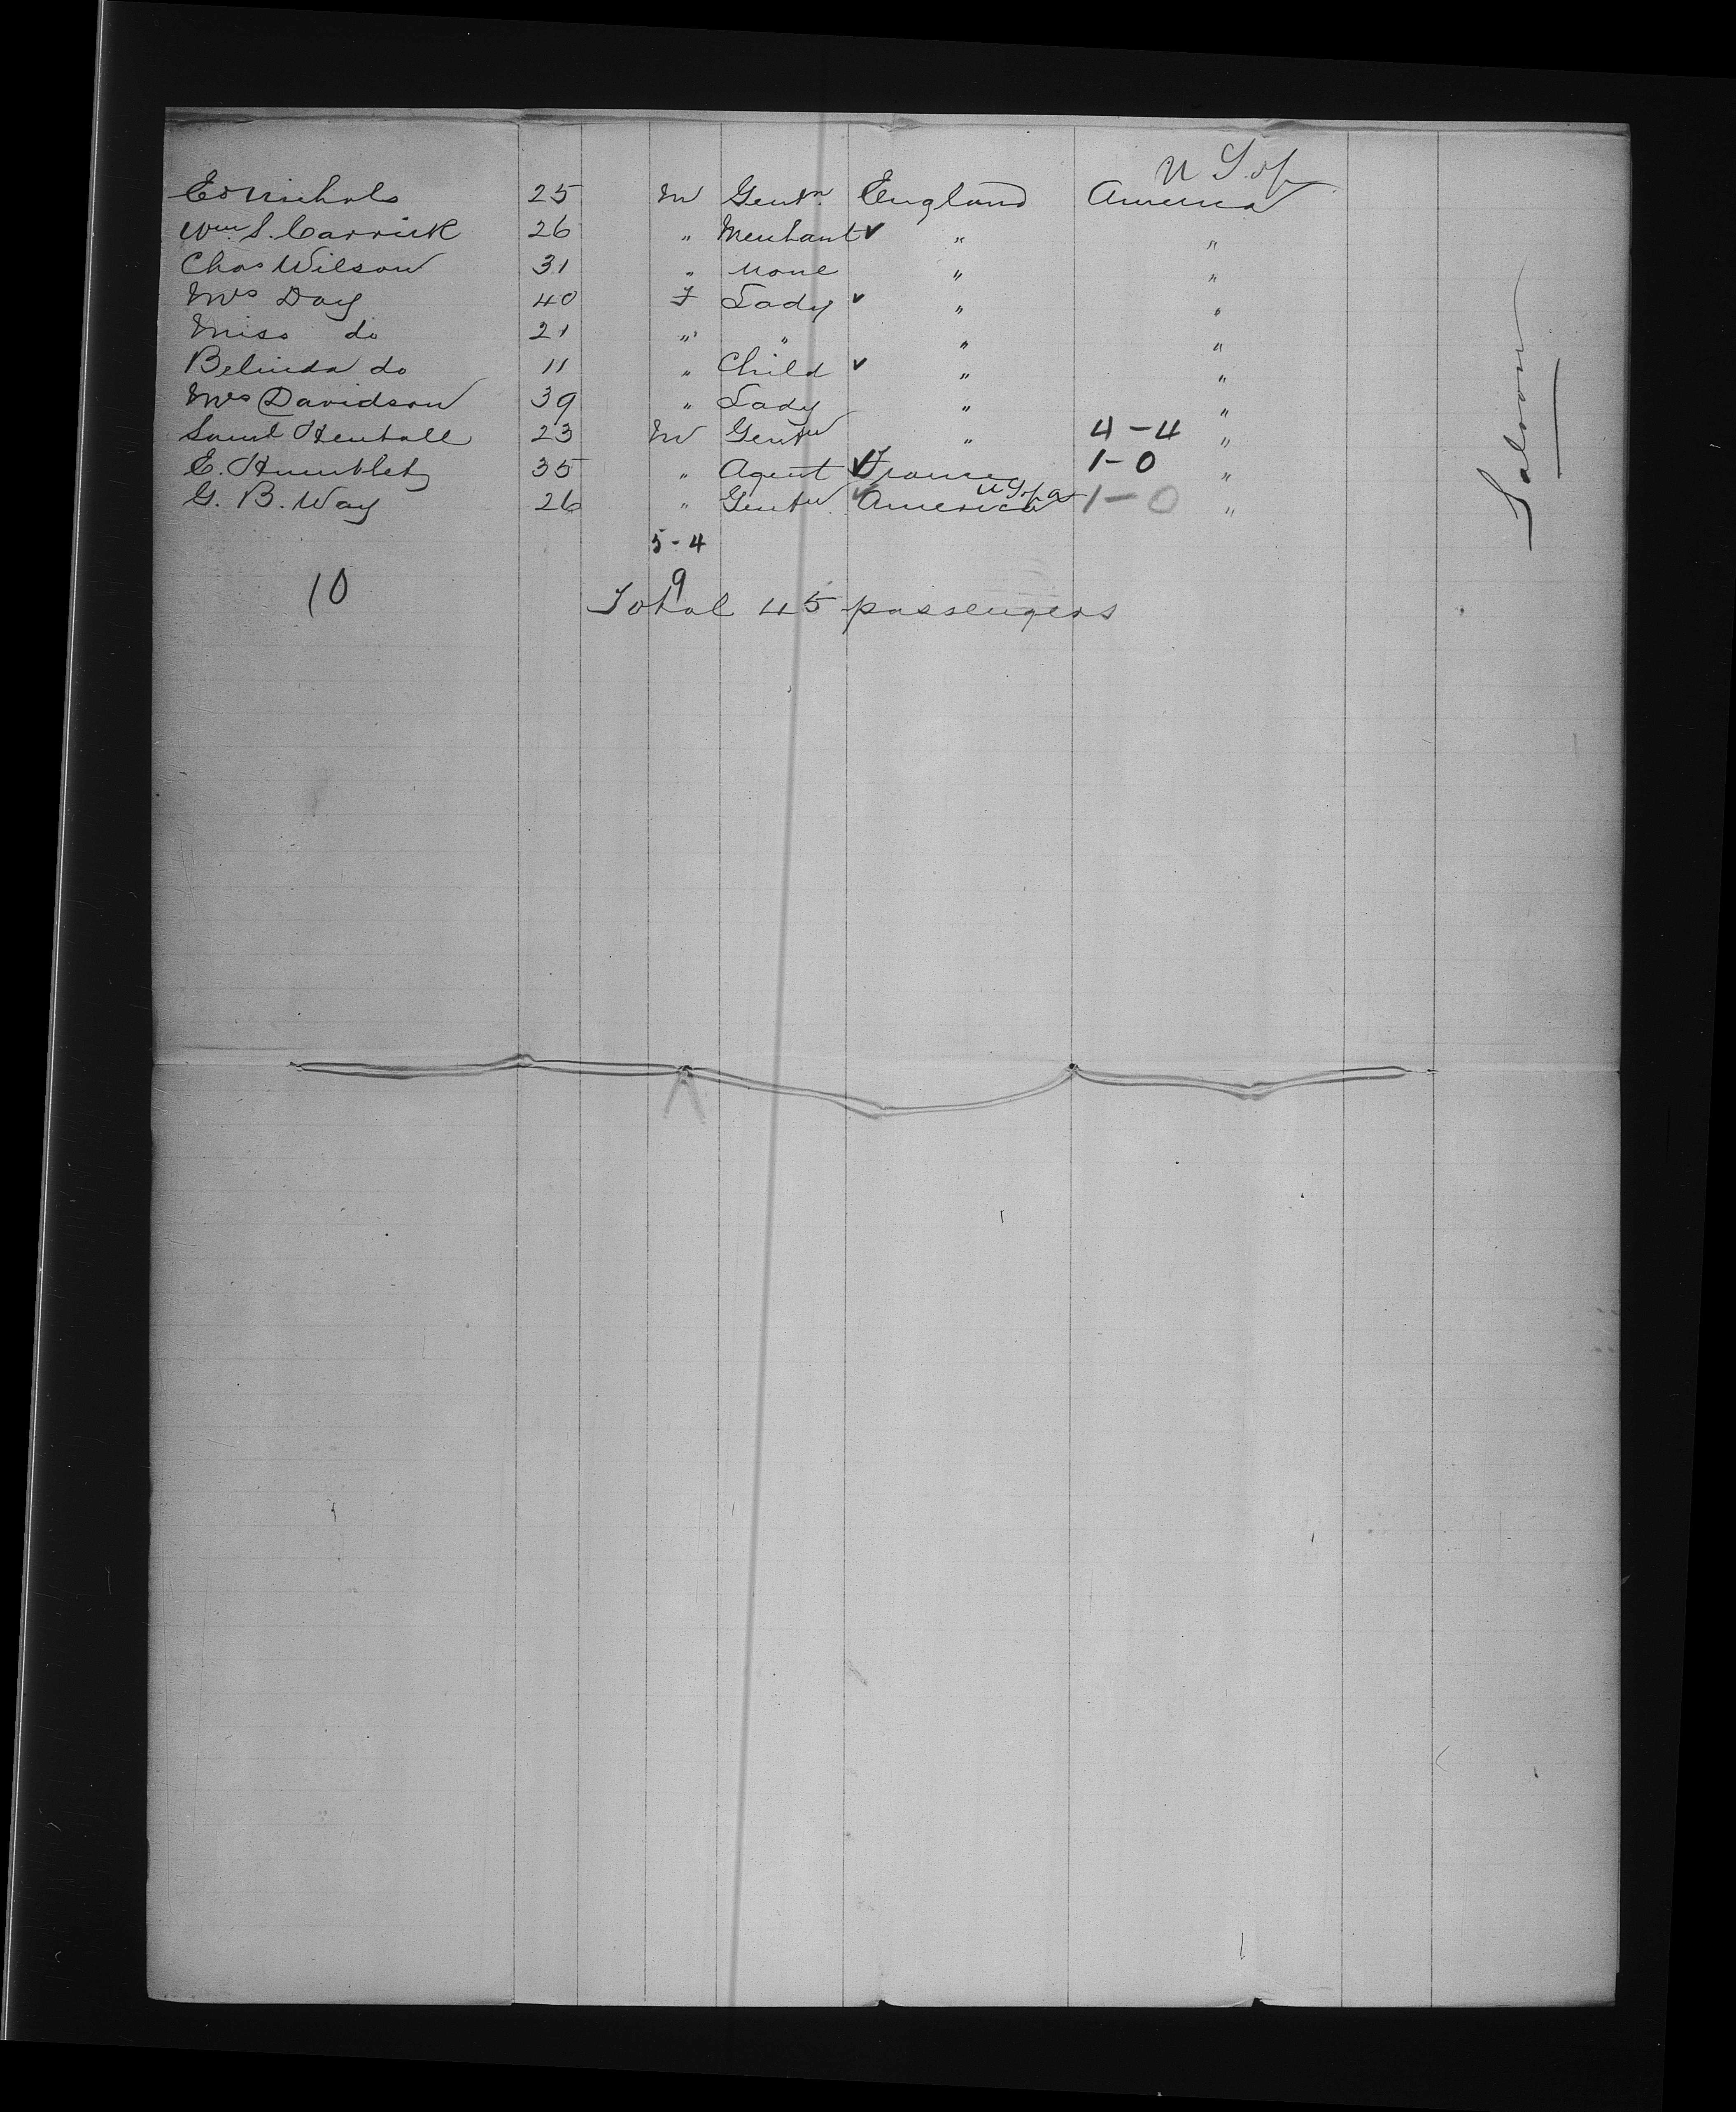 U S of
Ed Nichols 25 M Gentn England America
Wm S. Carrick 26 " Merchant ✓ " "
Chas Wilson 31 " None " "
Mrs Day 40 F Lady ✓ " "
Miss do 21 " " " "
Belinda do 11 " Child ✓ " "
Mrs Davidson 39 " Lady " "
Saml 23 M Gentn " 4-4 "
E. 35 " Agent ✓ France 1-0 "
U S of a
G. B. Way 26 " Gentn ✓ America 1-0 "
5-4
9
10 Total 45 passengers
Saloon